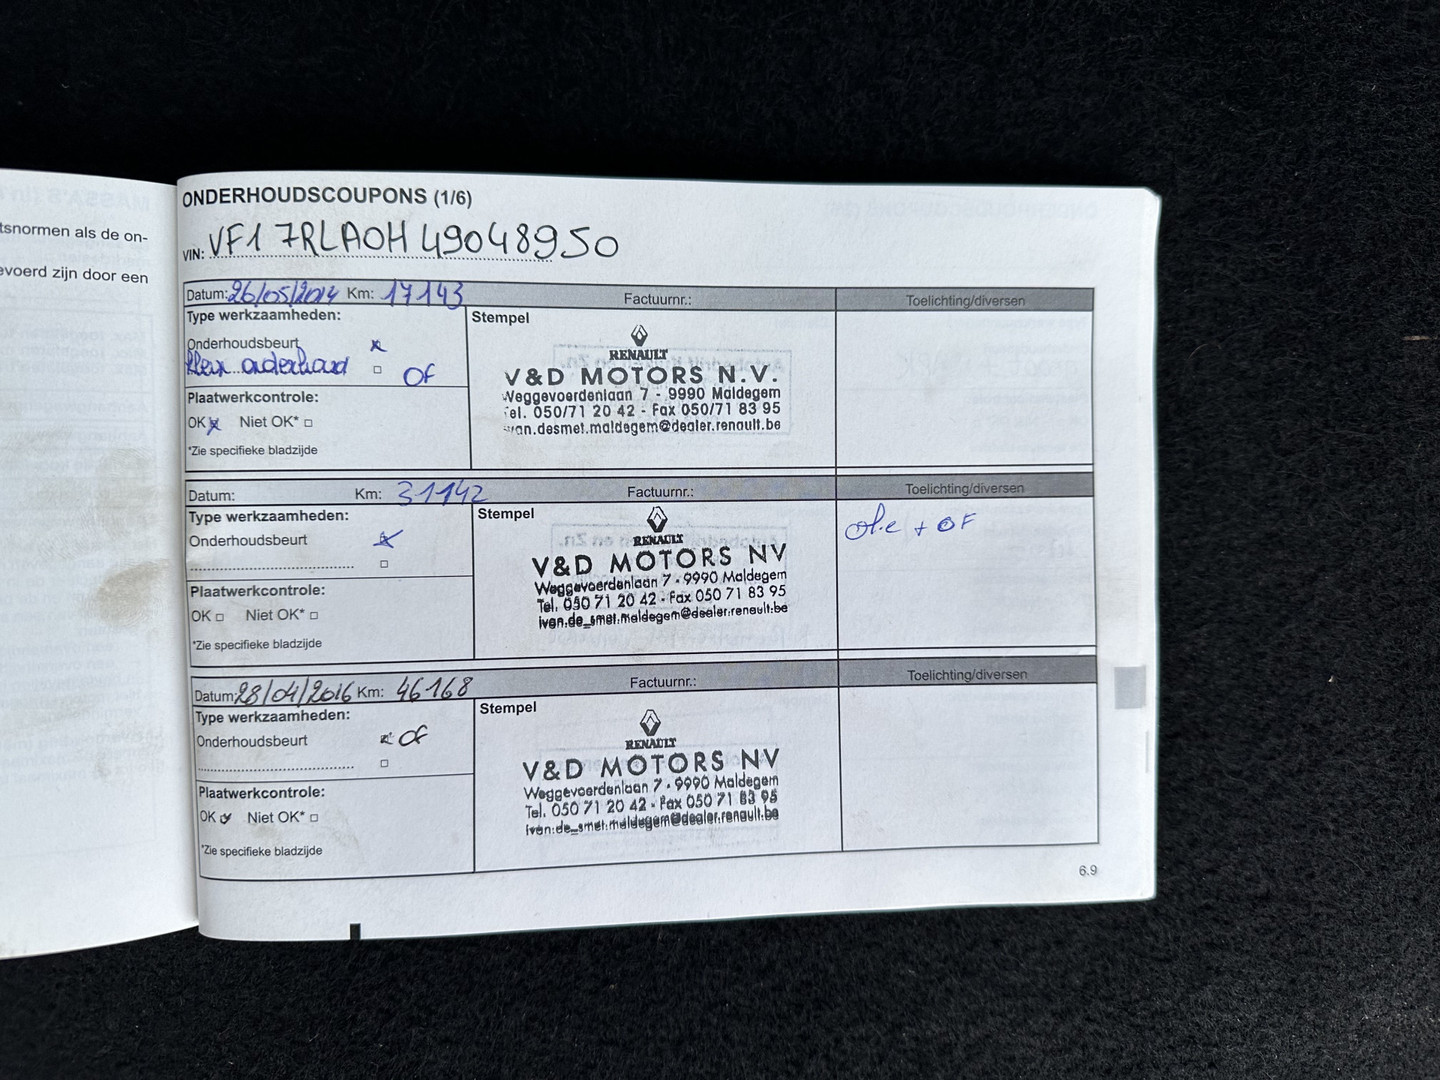 tsnormen als de on-
evoerd zijn door een
ONDERHOUDSCOUPONS (1/6)
VIN: VF17RLA0H49048950
Datum: 26/05/2014 Km: 17143 Factuurnr.: Toelichting/diversen
Type werkzaamheden:
Onderhoudsbeurt
klein onderhoud OF
Plaatwerkcontrole:
OK Niet OK*
*Zie specifieke bladzijde
Stempel
RENAULT
V&D MOTORS N.V.
Weggevoerdenlaan 7 - 9990 Maldegem
Tel. 050/71 20 42 - Fax 050/71 83 95
ivan.desmet.maldegem@dealer.renault.be
Datum: Km: 31142 Factuurnr.: Toelichting/diversen
Type werkzaamheden:
Onderhoudsbeurt
Plaatwerkcontrole:
OK Niet OK*
*Zie specifieke bladzijde
Stempel
RENAULT
V&D MOTORS NV
Weggevoerdenlaan 7 - 9990 Maldegem
Tel. 050 71 20 42 - Fax 050 71 83 95
ivan.de_smet.maldegem@dealer.renault.be
+ OF
Datum: 28/04/2016 Km: 46168 Factuurnr.: Toelichting/diversen
Type werkzaamheden:
Onderhoudsbeurt OF
Plaatwerkcontrole:
OK Niet OK*
*Zie specifieke bladzijde
Stempel
RENAULT
V&D MOTORS NV
Weggevoerdenlaan 7 - 9990 Maldegem
Tel. 050 71 20 42 - Fax 050 71 83 95
ivan.de_smet.maldegem@dealer.renault.be
6.9